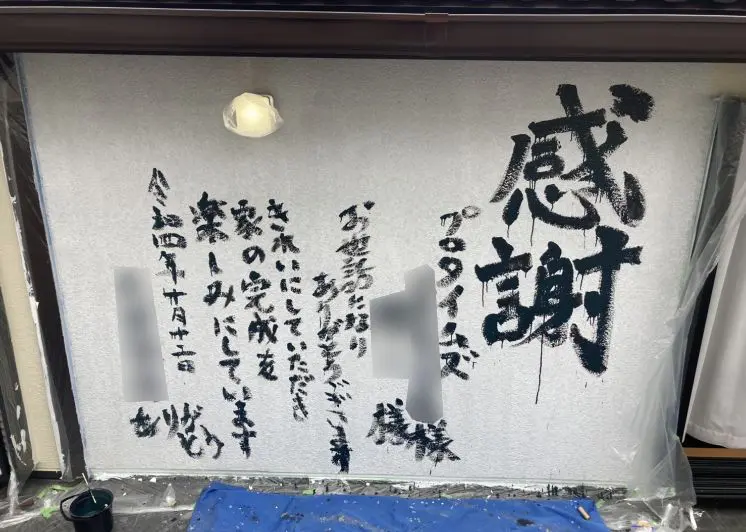 感謝
プロタイムズ
様
様
お世話になり
ありがとうございます
きれいにしていただき
家の完成を
楽しみにしています
令和四年
ありがとう